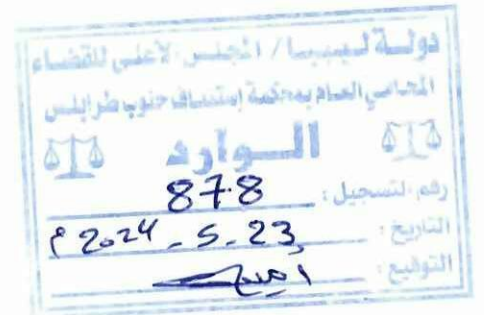 دولة ليبيا / المجلس الأعلى للقضاء
المحامي العام بمحكمة إستئناف جنوب طرابلس
الوارد
رقم التسجيل : 878
التاريخ : 23 - 5 - 2024 م
التوقيع :